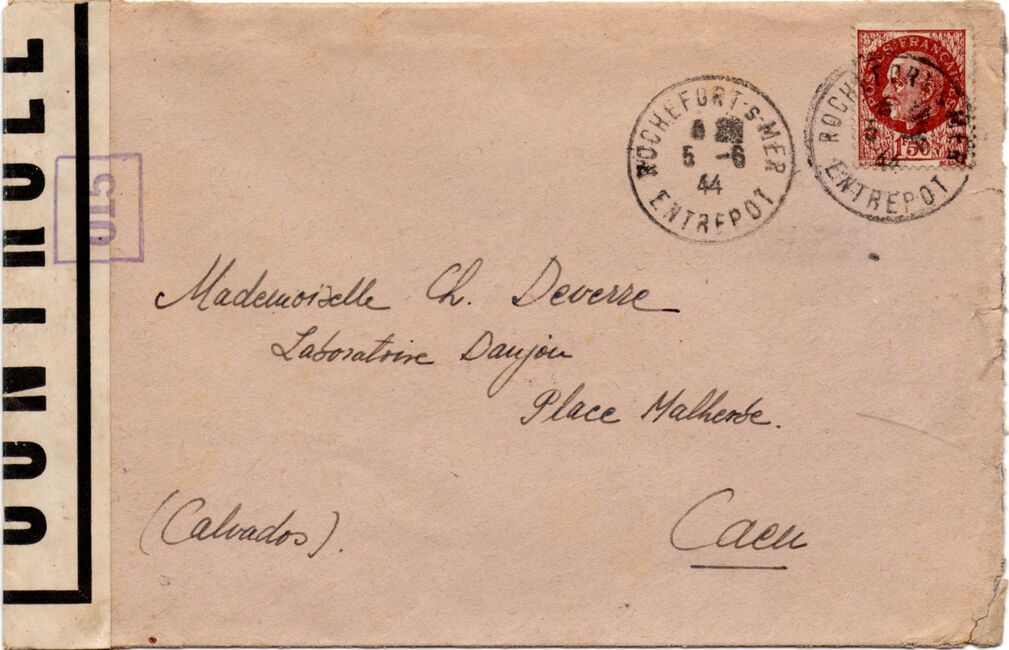 CONTROLE
015
ROCHEFORT-S-MER
5 -6
44
ENTREPOT
POSTES FRANÇAISES
1F50
ROCHEFORT-S-MER
5
44
ENTREPOT
Mademoiselle Ch. Deverre
Laboratoire Danjou
Place Malherbe.
(Calvados).
Caen